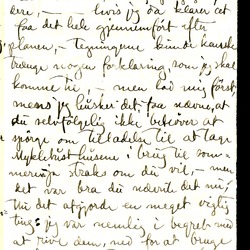 ere, — hvis jeg da klarer at
faa det hele gjennemført efter
planen, — Tegningerne kunde kanske
trænge nogen forklaring, som jeg skal
komme til, — men lad mig først,
mens jeg husker det, faa nævne, at
du selvfølgelig ikke behøver at
spørge om tilladelse til at tage
Myklehust-husene i brug til som-
straks om du vil, — men
det var bra du nævnte det nu,
thi det afgjorde en meget vigtig
ting: jeg var nemlig i begreb med
at rive dem ned for at bruge